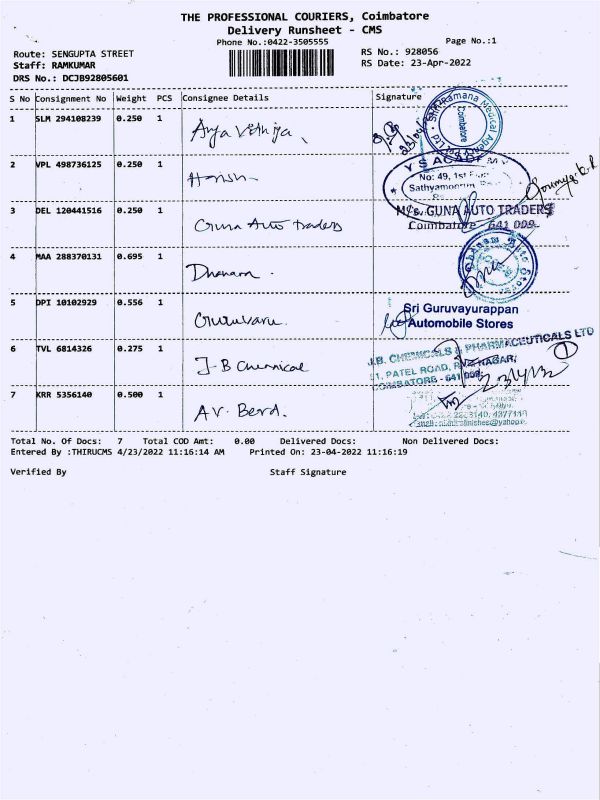 THE PROFESSIONAL COURIERS, Coimbatore
Delivery Runsheet - CMS
Phone No.:0422-3505555
Page No.:1
Route: SENGUPTA STREET
RS No.: 928056
Staff: RAMKUMAR
RS Date: 23-Apr-2022
DRS No.: DCJB92805601
S No Consignment No Weight PCS Consignee Details Signature
1 SLM 294108239 0.250 1
Sri Ramana Medical Agencies
Coimbatore
2 VPL 498736125 0.250 1 Harish
No: 49, 1st
Sathyamoorthy
3 DEL 120441516 0.250 1 Guna Auto traders
M/s. GUNA AUTO TRADERS
Coimbatore - 641 009.
4 MAA 288370131 0.695 1 Dhanam.
Dhanam Auto Stores
5 DPI 10102929 0.556 1 Guruvaru.
Sri Guruvayurappan
Automobile Stores
6 TVL 6814326 0.275 1 J-B Chemical
J.B. CHEMICALS & PHARMACEUTICALS LTD
PATEL ROAD, NAGAR,
COIMBATORE - 641 009.
1
7 KRR 5356140 0.500 1 AV.
Total No. Of Docs: 7 Total COD Amt: 0.00 Delivered Docs: Non Delivered Docs:
Entered By :THIRUCMS 4/23/2022 11:16:14 AM Printed On: 23-04-2022 11:16:19
Verified By Staff Signature